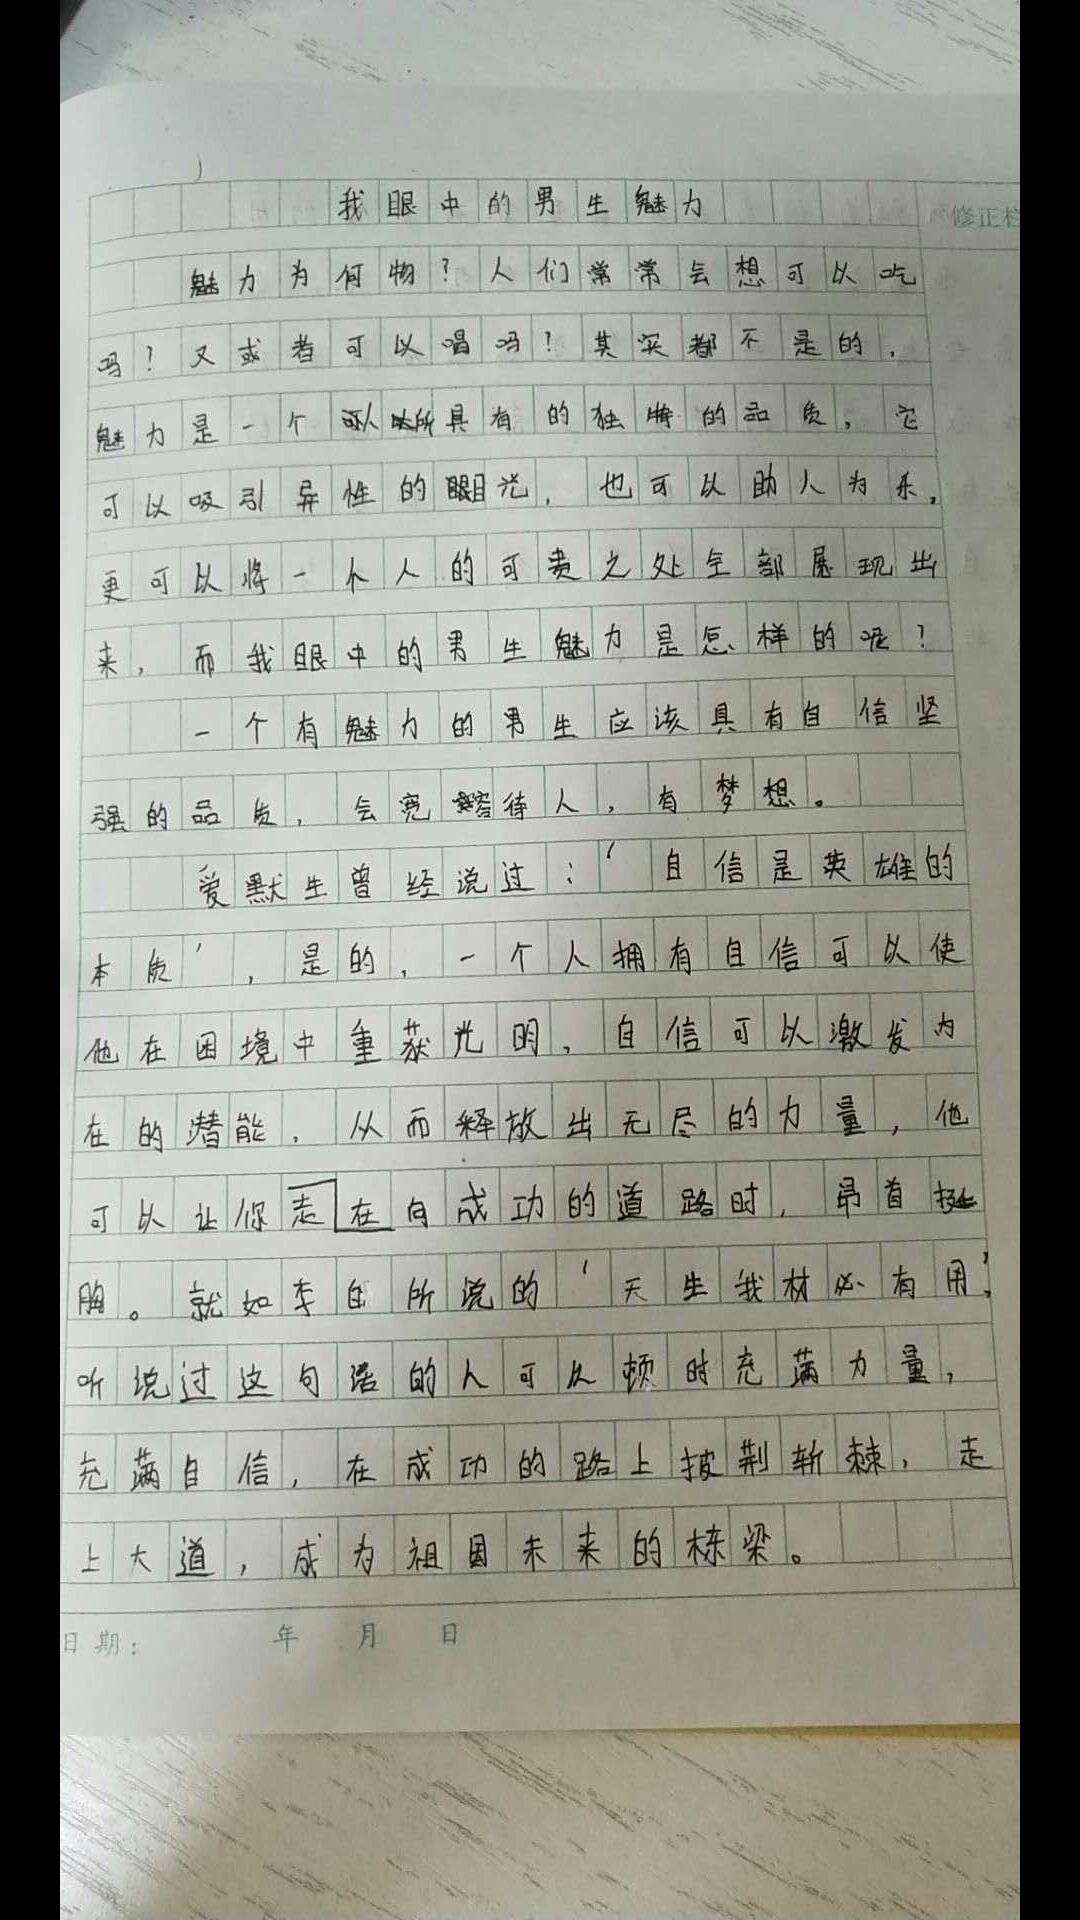 我眼中的男生魅力
修正栏
魅力为何物?人们常常会想可以吃
吗?又或者可以唱吗?其实都不是的,
魅力是一个人所具有的独特的品质,它
可以吸引异性的眼光,也可以助人为乐,
更可以将一个人的可贵之处全部展现出
来,而我眼中的男生魅力是怎样的呢?
一个有魅力的男生应该具有自信坚
强的品质,会宽容待人,有梦想。
爱默生曾经说过:‘自信是英雄的
本质’,是的,一个人拥有自信可以使
他在困境中重获光明,自信可以激发内
在的潜能,从而释放出无尽的力量,他
可以让你走在向成功的道路时,昂首挺
胸。就如李白所说的‘天生我材必有用’,
听说过这句话的人可以顿时充满力量,
充满自信,在成功的路上披荆斩棘,走
上大道,成为祖国未来的栋梁。
日期: 年 月 日